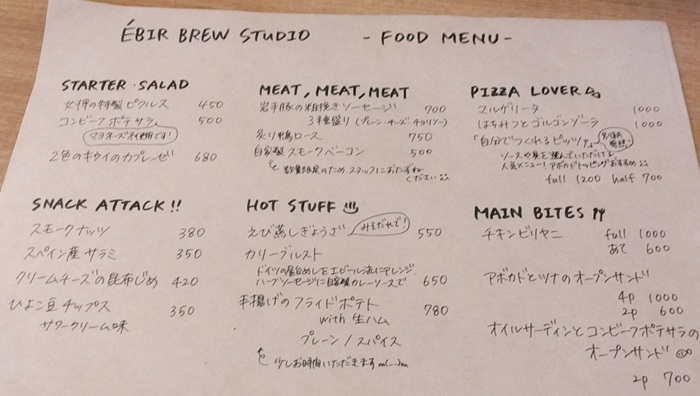 ÉBIR BREW STUDIO - FOOD MENU -
STARTER・SALAD
女将の特製ピクルス 450
コンビーフポテサラ 500
マヨネーズ不使用です！
2色のキウイのカプレーゼ 680
MEAT, MEAT, MEAT
岩手豚の粗挽きソーセージ 700
3種盛り（プレーン・チーズ・チョリソー）
炙り鴨ロース 750
自家製スモークベーコン 500
数量限定のため、スタッフにおたずね
ください
PIZZA LOVER
マルゲリータ 1000
はちみつとゴルゴンゾーラ 1000
「自分でつくれるピッツァ」
ソースや具を選んでいただける
人気メニュー！アボカドトッピングおすすめ
full 1200 half 700
SNACK ATTACK!!
スモークナッツ 380
スペイン産サラミ 350
クリームチーズの昆布じめ 420
ひよこ豆チップス 350
サワークリーム味
HOT STUFF
えび蒸しぎょうざ 550
カリーブルスト
ドイツの屋台めしをエビール流にアレンジ
ハーブソーセージに自家製カレーソースで 650
手揚げのフライドポテト 780
with 生ハム
プレーン / スパイス
少しお時間いただきます m(__)m
MAIN BITES
チキンビリヤニ full 1000
あて 600
アボカドとツナのオープンサンド
4p 1000
2p 600
オイルサーディンとコンビーフポテサラの
オープンサンド
2p 700